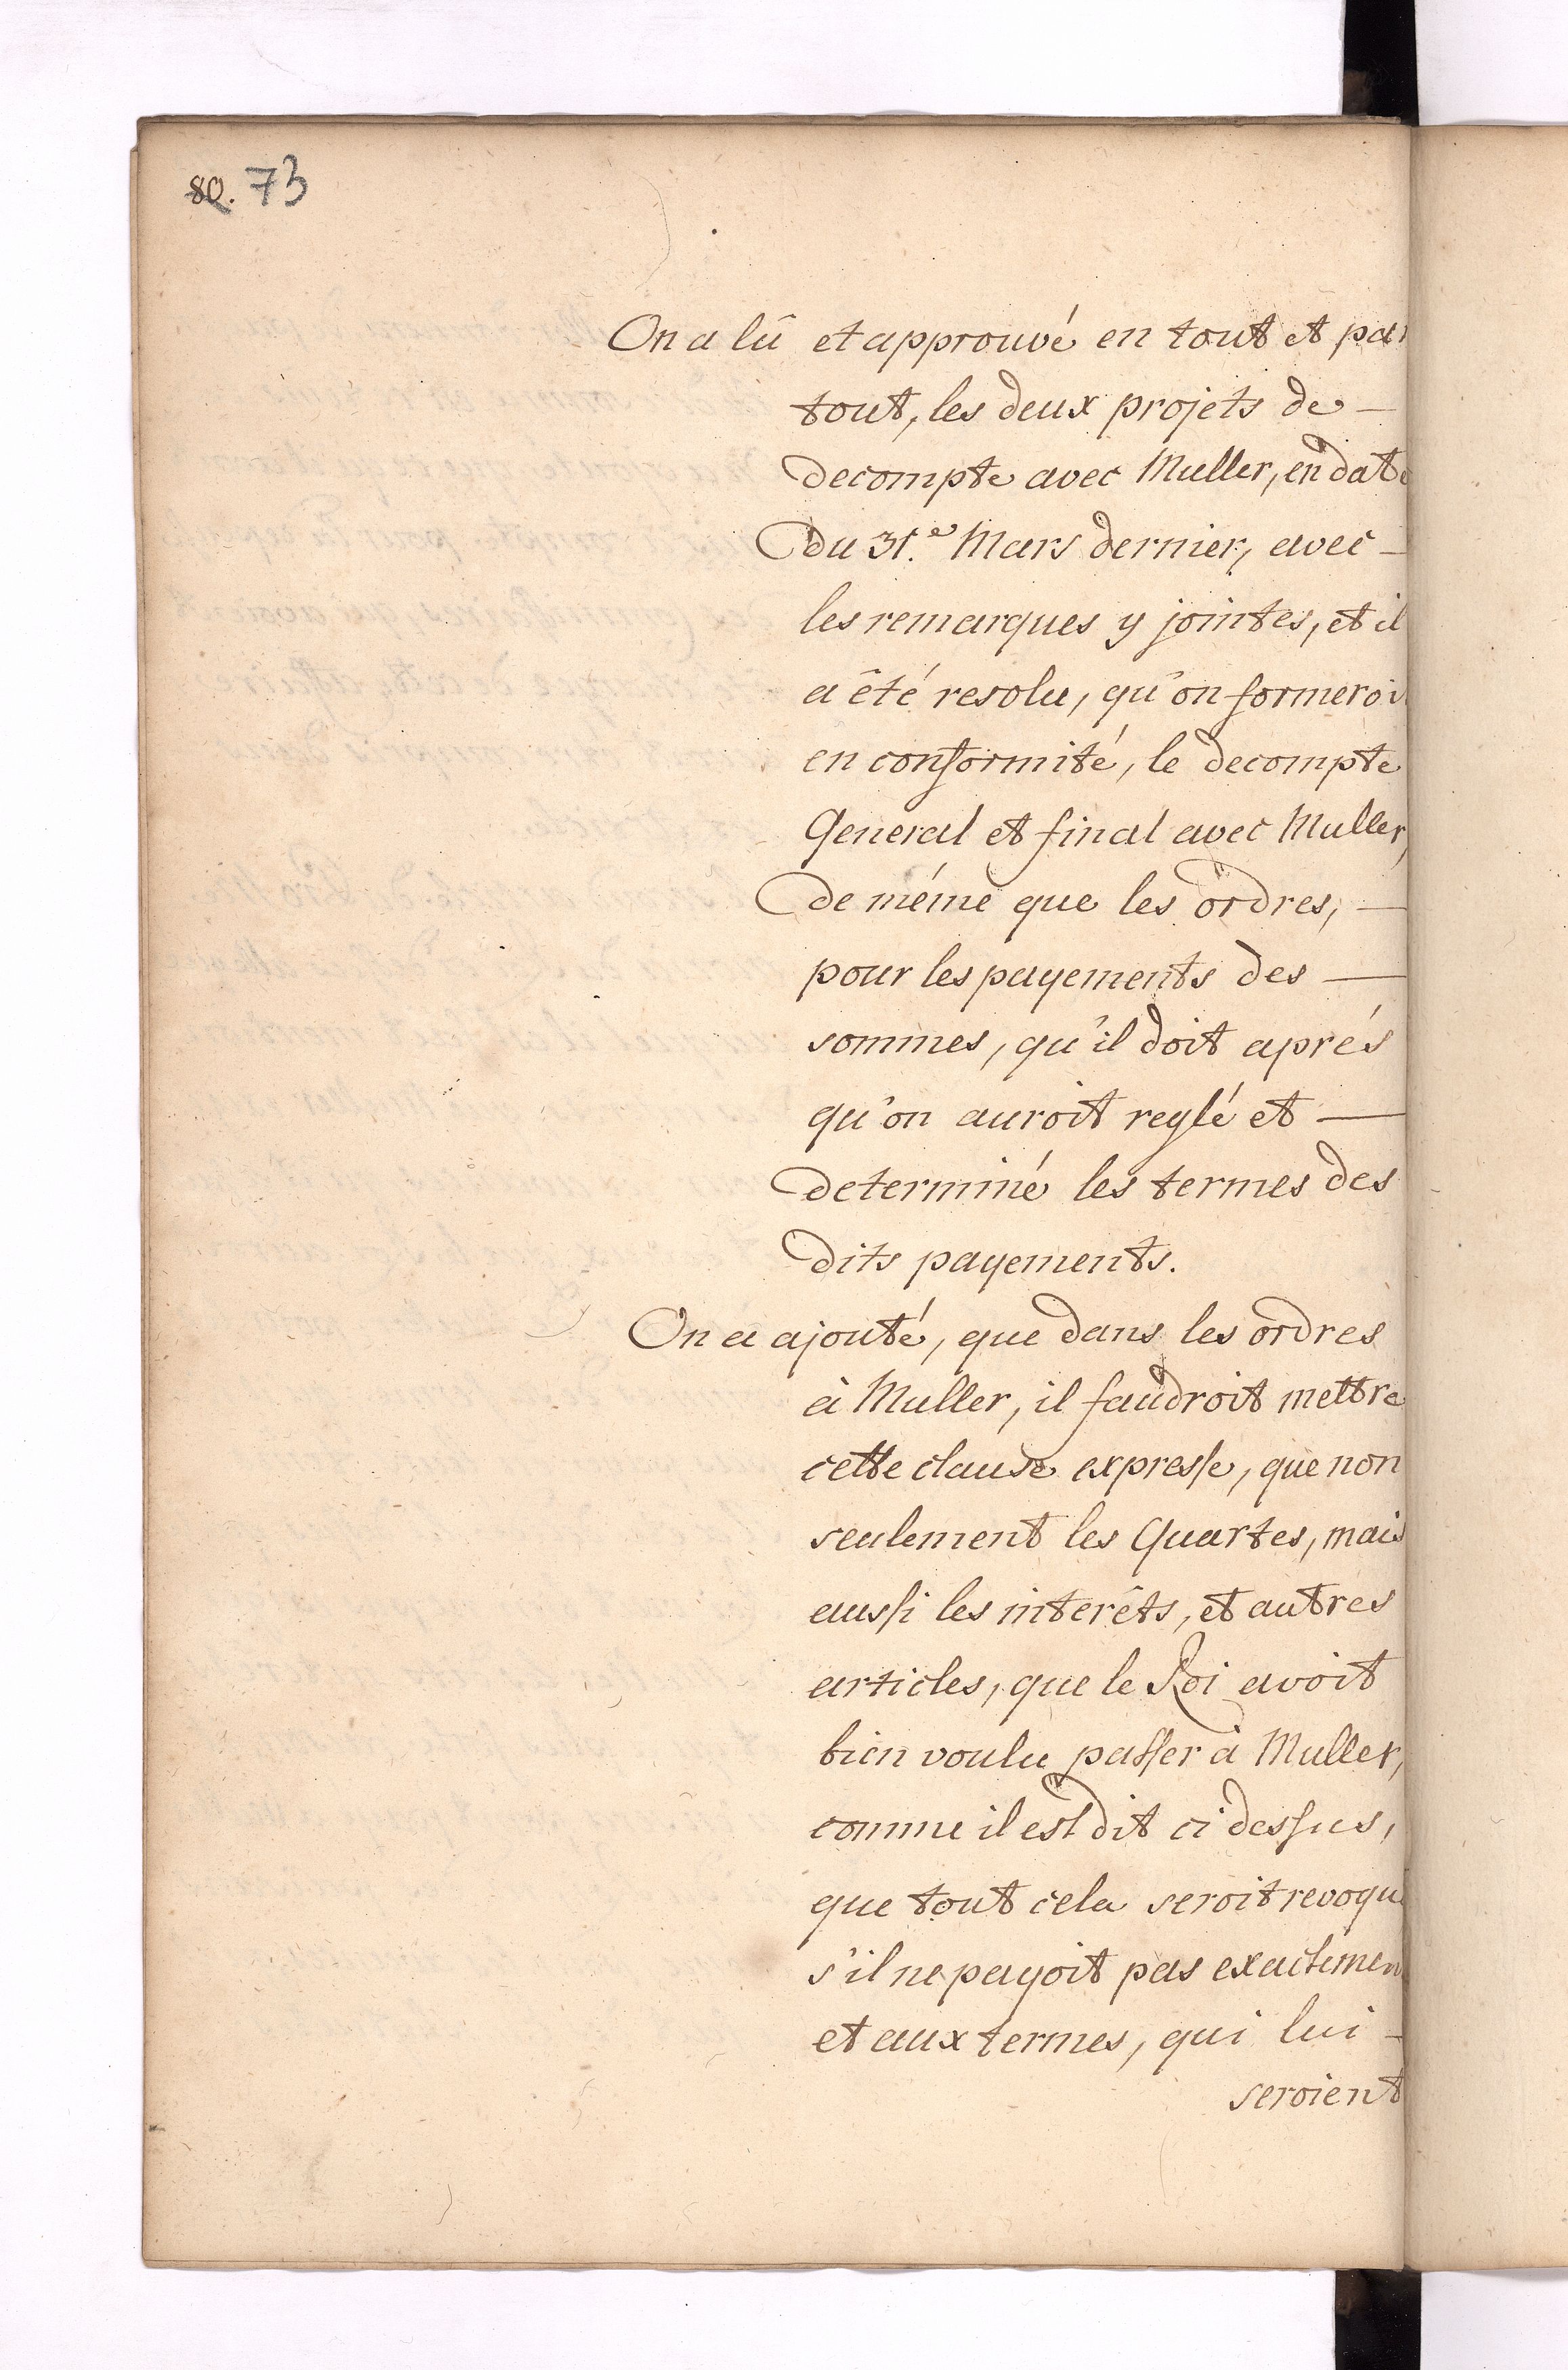 80. 73
On a lû et approuvé en tout et par
tout, les deux projets de —
decompte avec Muller, en date
du 31.e Mars dernier, avec —
les remarques y jointes, et il
a êté resolu, qu'on formeroi
en conformité, le decompte
General et final avec Muller,
de méme que les ordres, —
pour les payements des —
sommes, qu'il doit aprés
qu'on auroit reglé et —
determiné les termes des
dits payements.
On a ajouté, que dans les ordres
à Muller, il faudroit mettre
cette clause expresse, que non
seulement les Quartes, mais
aussi les interêts, et autres
articles, que le Roi avoit
bien voulu passer à Muller,
comme il est dit ci dessus,
que tout cela seroit revoqu
s'il ne payoit pas exactemen
et aux termes, qui lui —
seroient